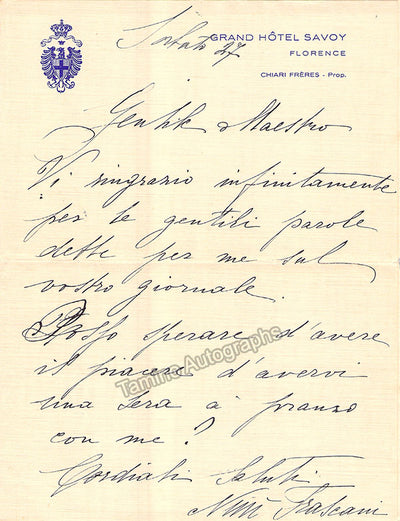 GRAND HÔTEL SAVOY
FLORENCE
CHIARI FRÈRES - Prop.
Sabato 27
Gentile Maestro
Vi ringrazio infinitamente
per le gentili parole
dette per me sul
vostro giornale.
Posso sperare d'avere
il piacere d'avervi
una sera à pranzo
con me?
Cordiali Saluti
Ninì Frascani
Tamino Autographs